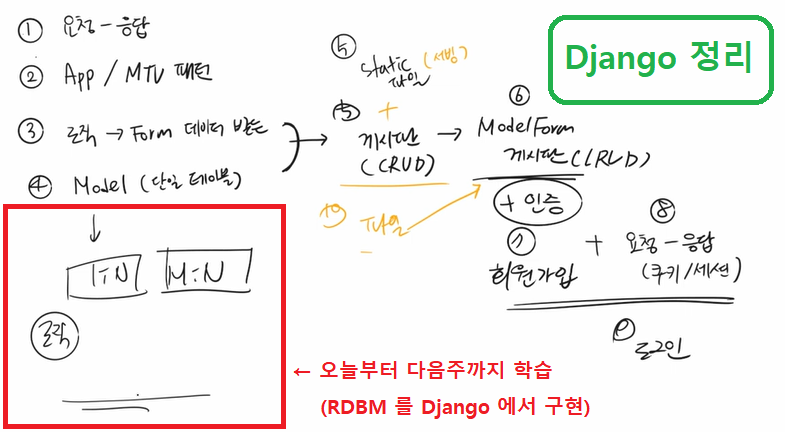 Django 정리
① 요청 - 응답
② App / MTV 패턴
③ 로직 → Form 데이터 받는
④ Model (단일 테이블)
↓
1:N
M:N
로직
⑤ static (서빙)
파일
⑤ +
게시판
(CRUD)
파일
⑥
ModelForm
게시판 (CRUD)
+ 인증
⑦
회원가입
+
⑧
요청 - 응답
(쿠키/세션)
로그인
← 오늘부터 다음주까지 학습
(RDBM 를 Django 에서 구현)